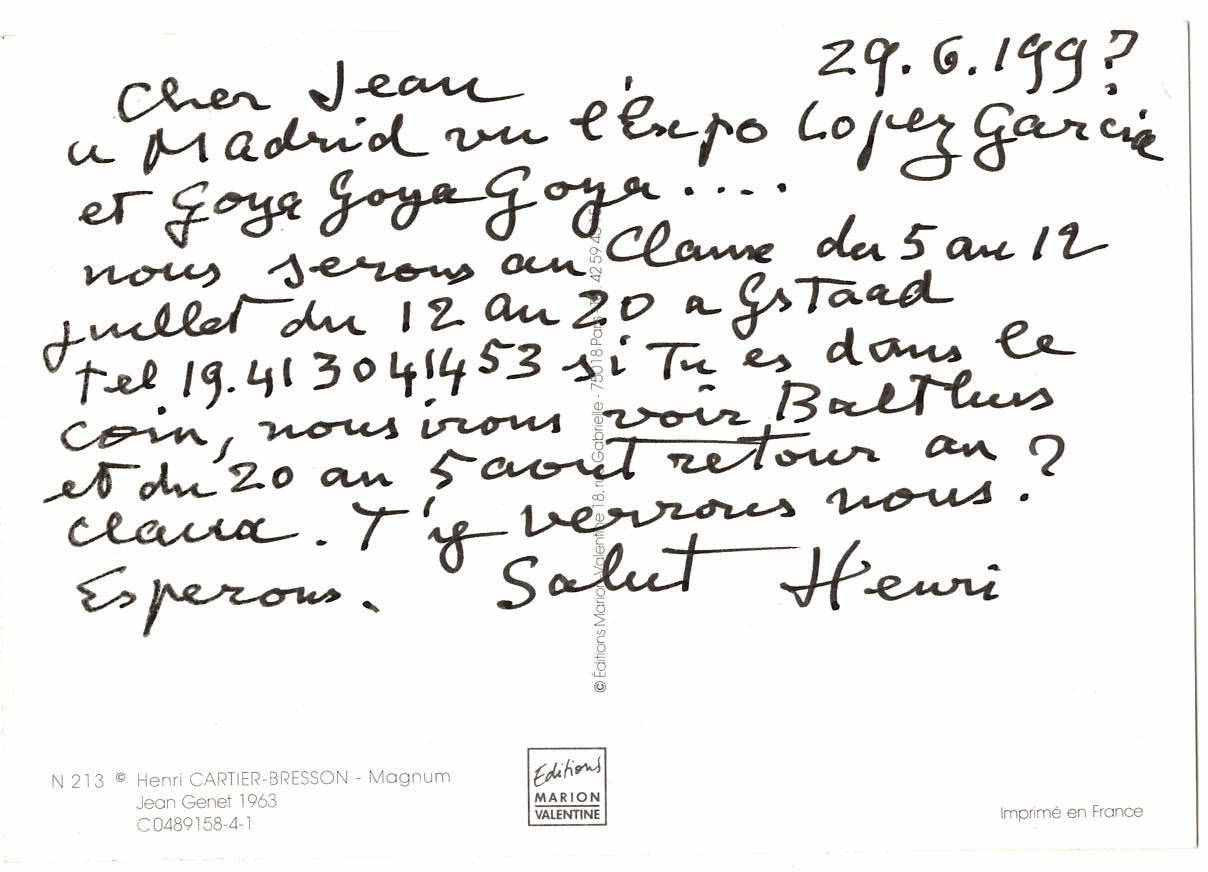 29.6.199?
Cher Jean
a Madrid vu l'Expo Lopez Garcia
et Goya Goya Goya....
nous serons au Claux du 5 au 12
juillet du 12 au 20 a Gstaad
tel 19.41 30 41453 si Tu es dans le
coin, nous irons voir Balthus
et du 20 au 5 aout retour au
Claux. T'y verrons nous.?
Esperons. Salut Henri
© Éditions Marion Valentine 18, rue Gabrielle - 75018 Paris
N 213 © Henri CARTIER-BRESSON - Magnum
Jean Genet 1963
C0489158-4-1
Editions
MARION
VALENTINE
Imprimé en France